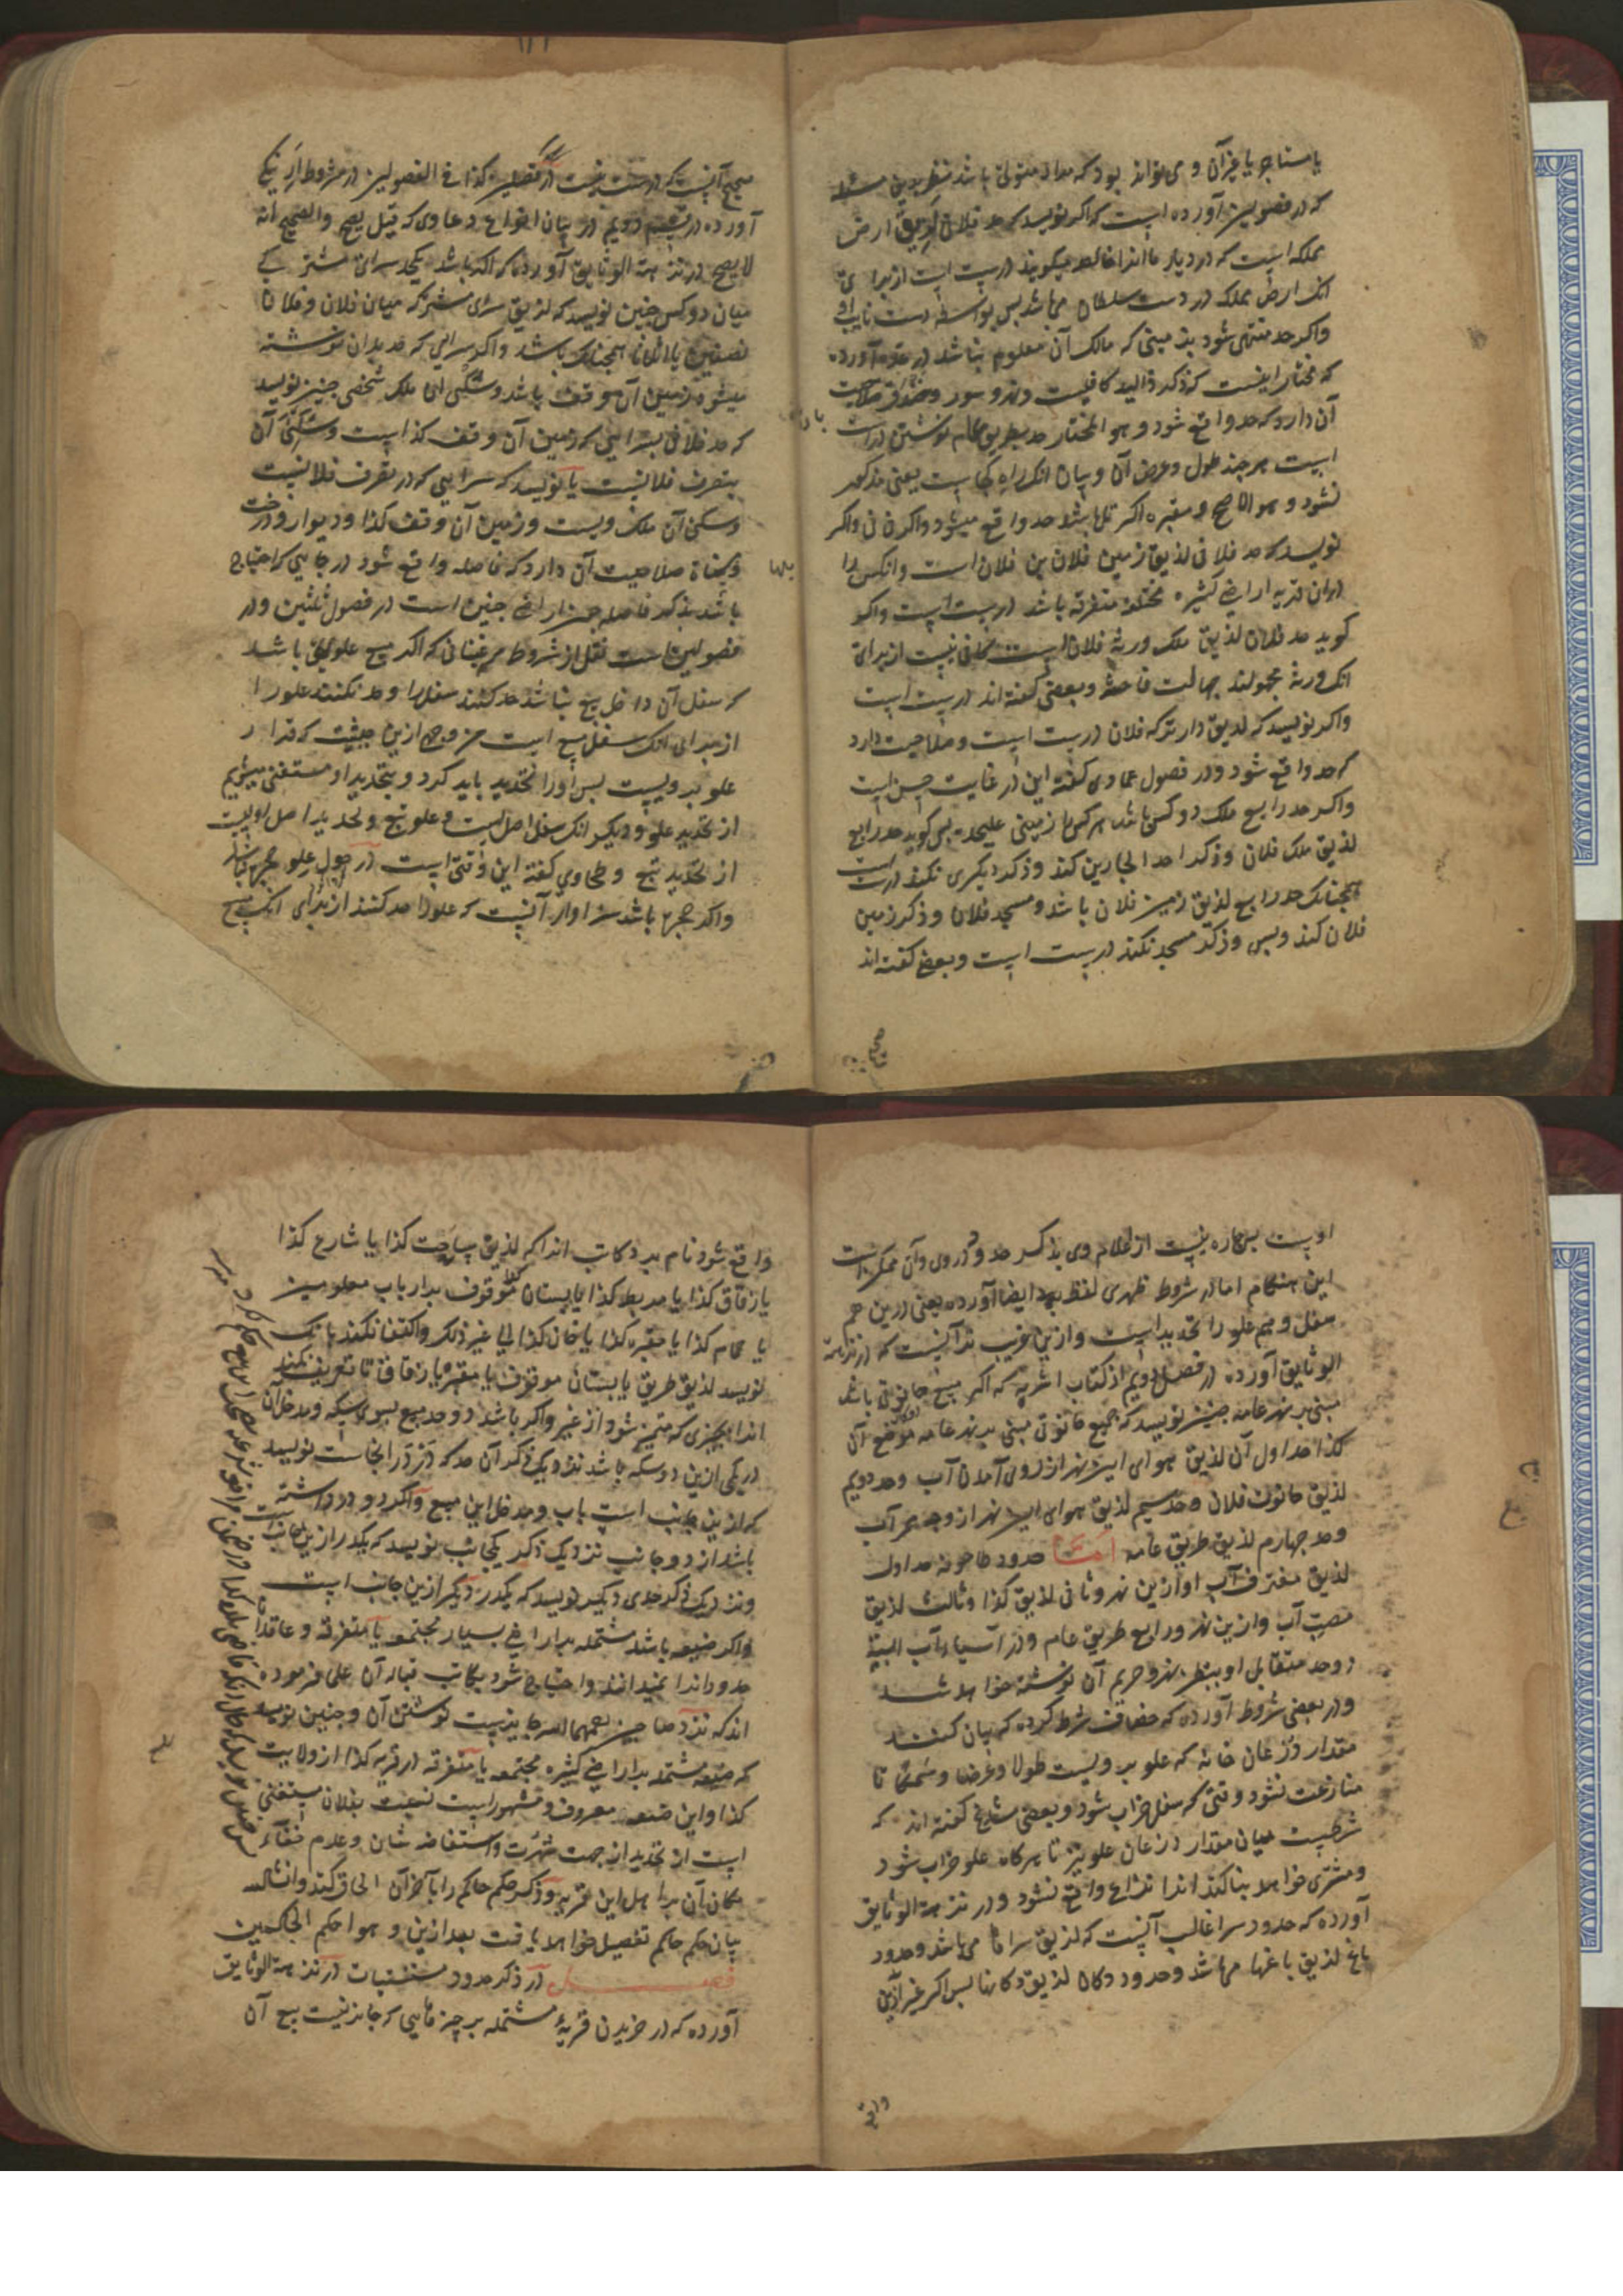 یا مستاجر یا غیر آن و می تواند بود که مراد متولی باشد نظر بدین مسئله
که در فصولین آورده است که اگر نویسد که حد فلان لزیق ارض
مملکه است که در دیار ما انرا خالصه میگویند درست است از برای
انک ارض مملکه در دست سلطان میباشد پس بواسطه دست نایب او
واگر حد منتهی شود بزمینی که مالک آن معلوم نباشد در عده آورده
که مختار اینست که ذکر ذالید کافیست ونهر و سور وخندق صلاحیت
آن دارد که حد واقع شود و هو المختار حد بطریق عام نوشتن درست
است هر چند طول وعرض آن و بیان انک راه کجاست یعنی مذکور
نشود و هو الاصح و مقبره اگر تل باشد حد واقع میشود واگر نی واگر
نویسد که حد فلانی لزیق زمین فلان بن فلان است وانکس را
دران قریه اراضی کثیره مختلفه متفرقه باشد درست است واگر
گوید حد فلان لزیق ملک ورثه فلان است کافی نیست از برای
انک ورثه مجهولند جهالت فاحشه وبعضی گفته اند درست است
واگر نویسد که لزیق دار ترکه فلان درست است وصلاحیت دارد
که حد واقع شود ودر فصول عمادی گفته این در غایت حسن است
واگر حد رابع ملک دو کس باشد هر کس را زمینی علیحده پس گوید حد رابع
لزیق ملک فلان وذکر احد الجارین کند وذکر دیگری نکند درست است
همچنانک حد رابع لزیق زمین فلان باشد و مسجد فلان وذکر زمین
فلان کند وبس وذکر مسجد نکند درست است وبعضی گفته اند
صحیح
صحیح آنست که درست نیست در فصلین کذا فی الفصولین در شروط
آورده در قسم دویم در بیان انواع دعاوی که قیل یصح والصحیح انه
لا یصح در نزهة الوثایق آورده که اگر باشد یکحد سرای مشترک
میان دو کس چنین نویسد که لزیق سرای مشترکه میان فلان وفلان
نصفین یا اثلاثا همچنانک باشد واگر سرایی که حد بدان نوشته
میشود زمین آن وقف باشد وسکنی ان ملک شخصی چنین نویسد
که حد فلانی بسرایی که زمین آن وقف کذا است وسکنی آن
بتصرف فلانیست یا نویسد که سرایی که در تصرف فلانیست
وسکنی آن ملک ویست وزمین آن وقف کذا ودیوار ودرخت
صلاحیت آن دارد که فاصله واقع شود در جایی که احتیاج
باشد بذکر فاصله جز اراضی چنین است در فصول ثلثین ودر
فصولین است نقل از شروط مرغینانی که اگر مبیع علو بیتی باشد
که سفل آن داخل بیع نباشد حد کنند سفل را وحد نکنند علو را
از برای انک سفل مبیع است من وجه ازین حیثیت که قرار
علو بر ویست پس اورا تحدید باید کرد و بتحدید او مستغنی میشویم
از تحدید علو ودیگر انک سفل اصل است وعلو تبع وتحدید اصل اولیست
از تحدید تبع وطحاوی گفته این وقتی است که در حول علو حجره نباشد
واگر حجره باشد سزاوار آنست که علو را حد کنند از برای انک مبیع
اوست پس چاره نیست از اعلام وی بذکر حدود وی وآن ممکن است
این هنگام اما در شروط ظهیری لفظ ایضا آورده یعنی درین هم
سفل وهم علو را تحدید است وازین غریب تر آنست که در نزهة
الوثایق آورده در فصل دویم از کتاب اشربه که اگر مبیع حانوتی باشد
مبنی بر نهر عامه چنین نویسد که جمیع حانوتی مبنی بر نهر عامه موضع آن
کذا حد اول آن لزیق هوای این نهر از روی آمدن آب وحد دویم
لزیق حانوت فلان وحد سیم لزیق هوای این نهر از وجه ممر آب
وحد چهارم لزیق طریق عامه امّا حدود طاحونه حد اول
لزیق مغترف آب او ازین نهر وثانی لزیق کذا وثالث لزیق
مصب آب وازین نهر ورابع طریق عام ودر آسیاء آب البته
دو حد متقابل او بنظر نهر وحریم آن نوشته خواهد شد
ودر بعضی شروط آورده که خصاف شرط کرده که بیان کنند
مقدار ذرعان خانه که علو بر ویست طولا وعرضا وسمکا تا
منازعت نشود وقتی که سفل خراب شود وبعضی مشایخ گفته اند که
شرطیست بیان مقدار ذرعان علو نیز تا هرگاه علو خراب شود
ومشتری خواهد بنا کند انرا نزاع واقع نشود ودر نزهة الوثایق
آورده که حدود سرا غالب آنست که لزیق سراها می باشد وحدود
باغ لزیق باغها میباشد وحدود دکان لزیق دکانها پس اگر غیر ازین
واقع
واقع شود نام برد کاتب انرا که لزیق ساحت کذا یا شارع کذا
یا زقاق کذا یا مربط کذا یا بستان کذا موقوف بر ارباب معلومین
یا حمام کذا یا مقبره کذا یا خان کذا الی غیر ذلک واکتفا نکند بانک
نویسد لزیق طریق یا بستان موقوف یا مقبره یا زقاق تا تعریف نکند
انرا بچیزی که متمیز شود از غیر واگر باشد دو حد مبیع بسوی سکه ومدخل آن
در یکی ازین دو سکه باشد نزدیک ذکر آن حد که در انجاست نویسد
که ازین جانب است باب ومدخل این مبیع واگر دو در داشته
باشد از دو جانب نزدیک ذکر یکجانب نویسد که یکدر ازین جانب است
ونزدیک ذکر حدی دیگر نویسد که یکدر دیگر ازین جانب است
واگر ضیعه باشد مشتمله بر اراضی بسیار مجتمعه یا متفرقه وعاقدان
حدود انرا نمیدانند واحتیاج شود بکاتب قباله آن علی فرموده
اند که نزد صاحبین رحمهما الله جایزست نوشتن آن وچنین نویسد
که ضیعه مشتمله بر اراضی کثیره مجتمعه یا متفرقه در قریه کذا از ولایت
کذا واین ضیعه معروف ومشهور است نسبت بفلان مستغنی
است از تحدید از جهت شهرت واستفاضه شان وعدم خفاء
مکان آن بر اهل این قریه وذکر حکم حاکم را بآخر آن الحاق کند وانشالله
بیان حکم حاکم تفصیل خواهد یافت بعد ازین و هو احکم الحاکمین
فصل در ذکر حدود مستثنیات در نزهة الوثایق
آورده که در خریدن قریهٔ مشتمله بر چیزهایی که جایز نیست بیع آن